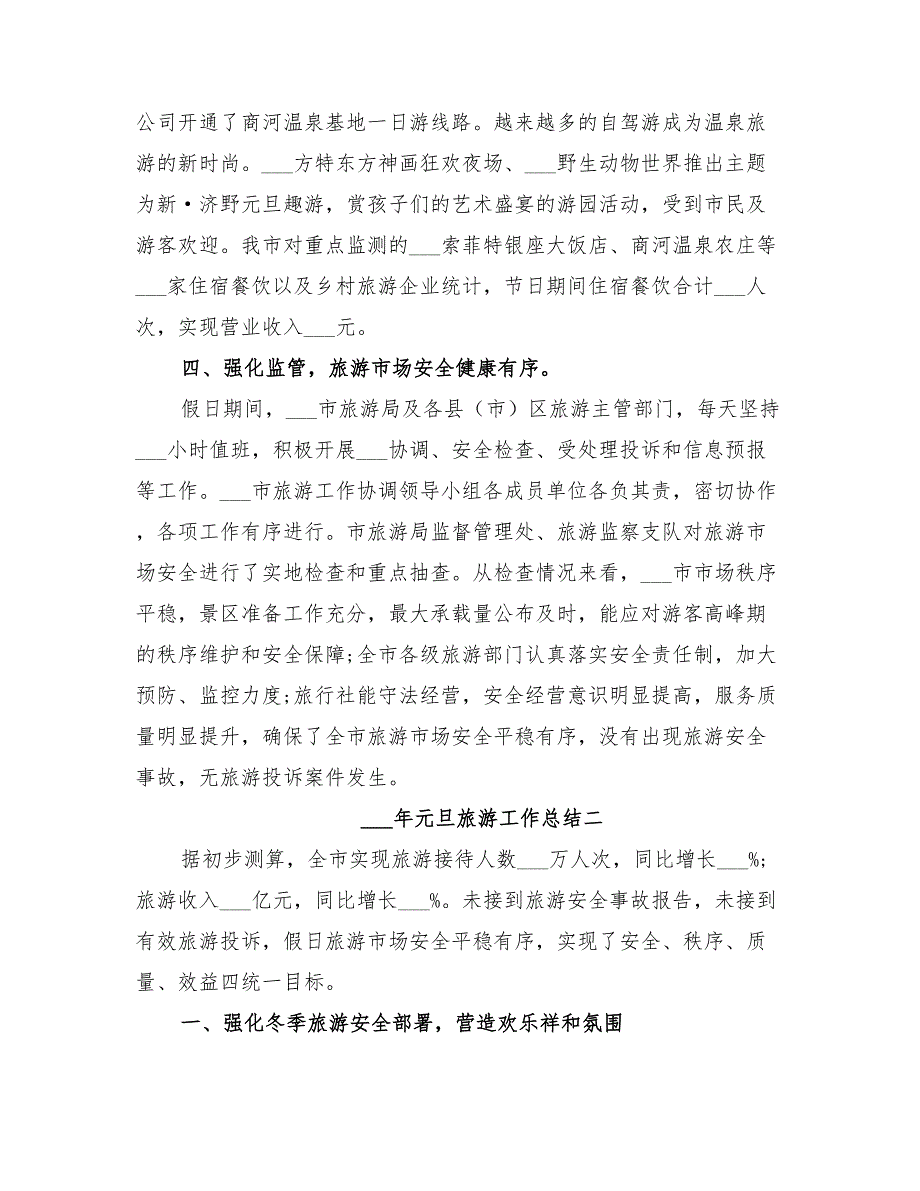 公司开通了商河温泉基地一日游线路。越来越多的自驾游成为温泉旅
游的新时尚。___方特东方神画狂欢夜场、___野生动物世界推出主题
为新·济野元旦趣游，赏孩子们的艺术盛宴的游园活动，受到市民及
游客欢迎。我市对重点监测的___索菲特银座大饭店、商河温泉农庄等
___家住宿餐饮以及乡村旅游企业统计，节日期间住宿餐饮合计___人
次，实现营业收入___元。
四、强化监管，旅游市场安全健康有序。
假日期间，___市旅游局及各县（市）区旅游主管部门，每天坚持
___小时值班，积极开展___协调、安全检查、受处理投诉和信息预报
等工作。___市旅游工作协调领导小组各成员单位各负其责，密切协作
，各项工作有序进行。市旅游局监督管理处、旅游监察支队对旅游市
场安全进行了实地检查和重点抽查。从检查情况来看，___市市场秩序
平稳，景区准备工作充分，最大承载量公布及时，能应对游客高峰期
的秩序维护和安全保障;全市各级旅游部门认真落实安全责任制，加大
预防、监控力度;旅行社能守法经营，安全经营意识明显提高，服务质
量明显提升，确保了全市旅游市场安全平稳有序，没有出现旅游安全
事故，无旅游投诉案件发生。
___年元旦旅游工作总结二
据初步测算，全市实现旅游接待人数___万人次，同比增长___%;
旅游收入___亿元，同比增长___%。未接到旅游安全事故报告，未接到
有效旅游投诉，假日旅游市场安全平稳有序，实现了安全、秩序、质
量、效益四统一目标。
一、强化冬季旅游安全部署，营造欢乐祥和氛围